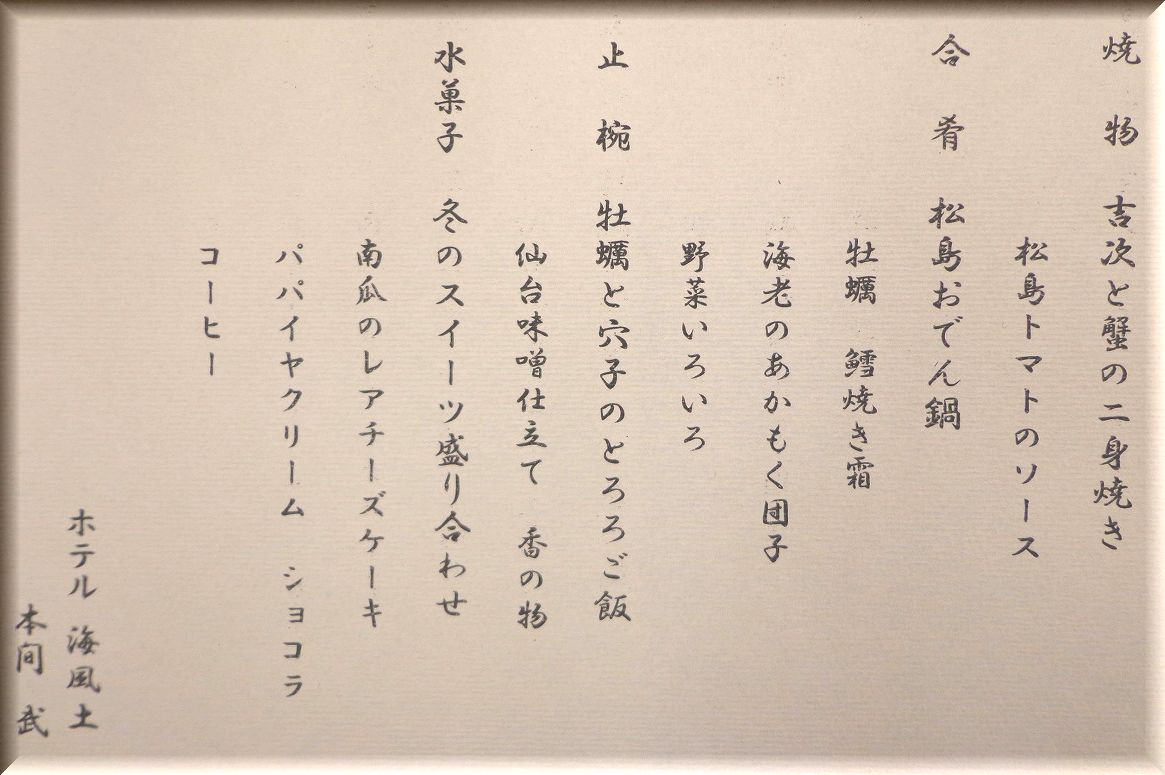 焼物 吉次と蟹の二身焼き
松島トマトのソース
合肴 松島おでん鍋
牡蠣 鱈焼き霜
海老のあかもく団子
野菜いろいろ
止椀 牡蠣と穴子のとろろご飯
仙台味噌仕立て 香の物
水菓子 冬のスイーツ盛り合わせ
南瓜のレアチーズケーキ
パパイヤクリーム ショコラ
コーヒー
ホテル 海風土
本间 武